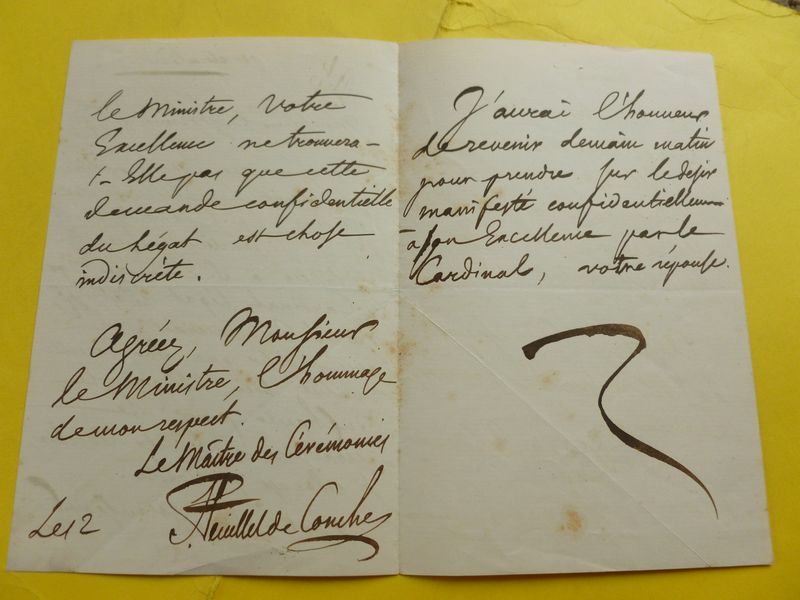 le Ministre, Votre
Excellence ne trouvera-
t-Elle pas que cette
demande confidentielle
du légat est chose
indiscrète.
Agréez, Monsieur
le Ministre, l'hommage
de mon respect.
Le Maître des Cérémonies
F. Feuillet de Conches
Le 12
J'aurai l'honneur
de revenir demain matin
pour prendre sur le désir
manifesté confidentiellement
à son Excellence par le
Cardinal, votre réponse.